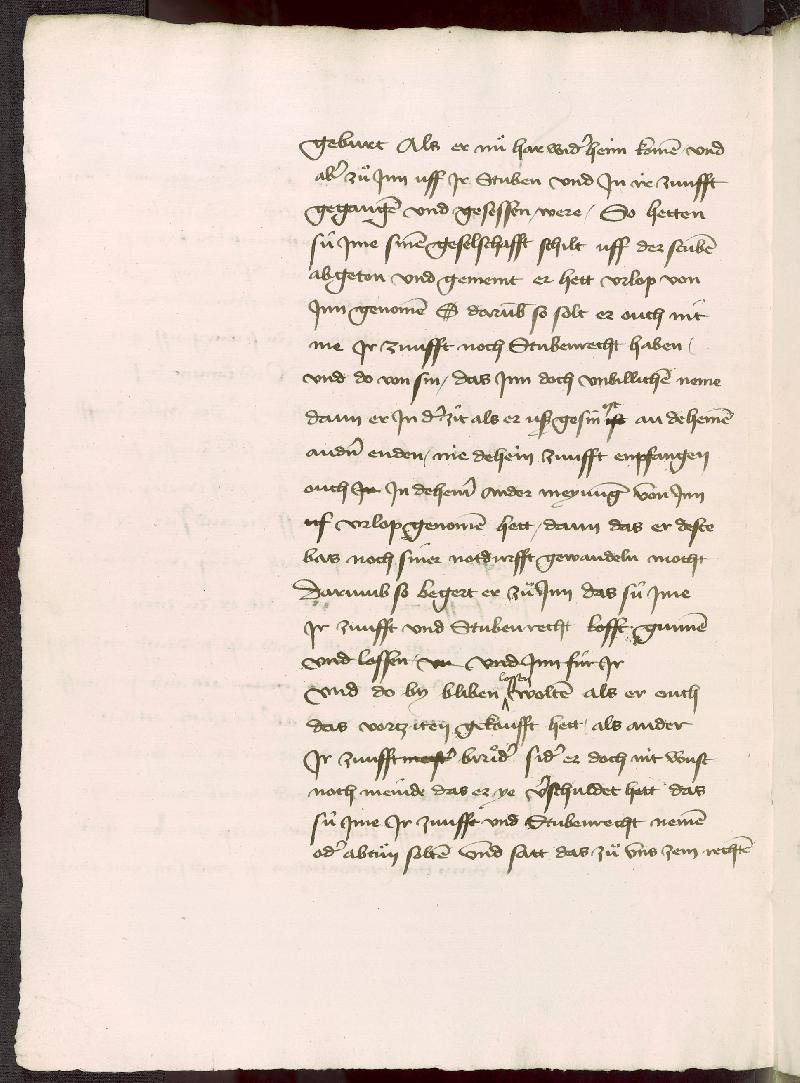 geburt Als er nuͦ har wid̓ heim komē vnd
ab̓ zuͦ Jnn uff Jr Stuben vnd Jn ir zunfft
gegangē vnd gesessen were / So hetten
sú Jme sinē geselschafft schilt uff der stubē
abgeton vnd gemeint er hett vrlop von
Jnn genomē darūb so solt er ouch nit
me Jr zunfft noch Stubenrecht haben /
vnd do von sin / das Jnn doch vnbillichē neme
dann er Jn d̓ zit als er usz gesin ist an deheinē
and̓n enden / nie dehein zunfft enpfangen
ouch Jn dehein̓ ander meynung von Jnn
vrlop genomē hett / dann das er deste
bas noch siner notdurfft gewandeln mocht
Darumb so begert er zuͦ Jnn das sú Jme
Jr zunfft vnd Stubenrecht gunnē
vnd lossen vnd Jnn fúr Jr
vnd do by bliben lossen woltē als er ouch
das vortziten gekaufft hett / als ander
Jr zunfft bruͤd̓ sid̓ er doch nit wust
noch meinde das er ye v̓schuldet hett das
sú Jme Jr zunfft vnd Stubenrecht nemē
od̓ abtuͦn soltē vnd satt das zuͦ vns zem rechtē